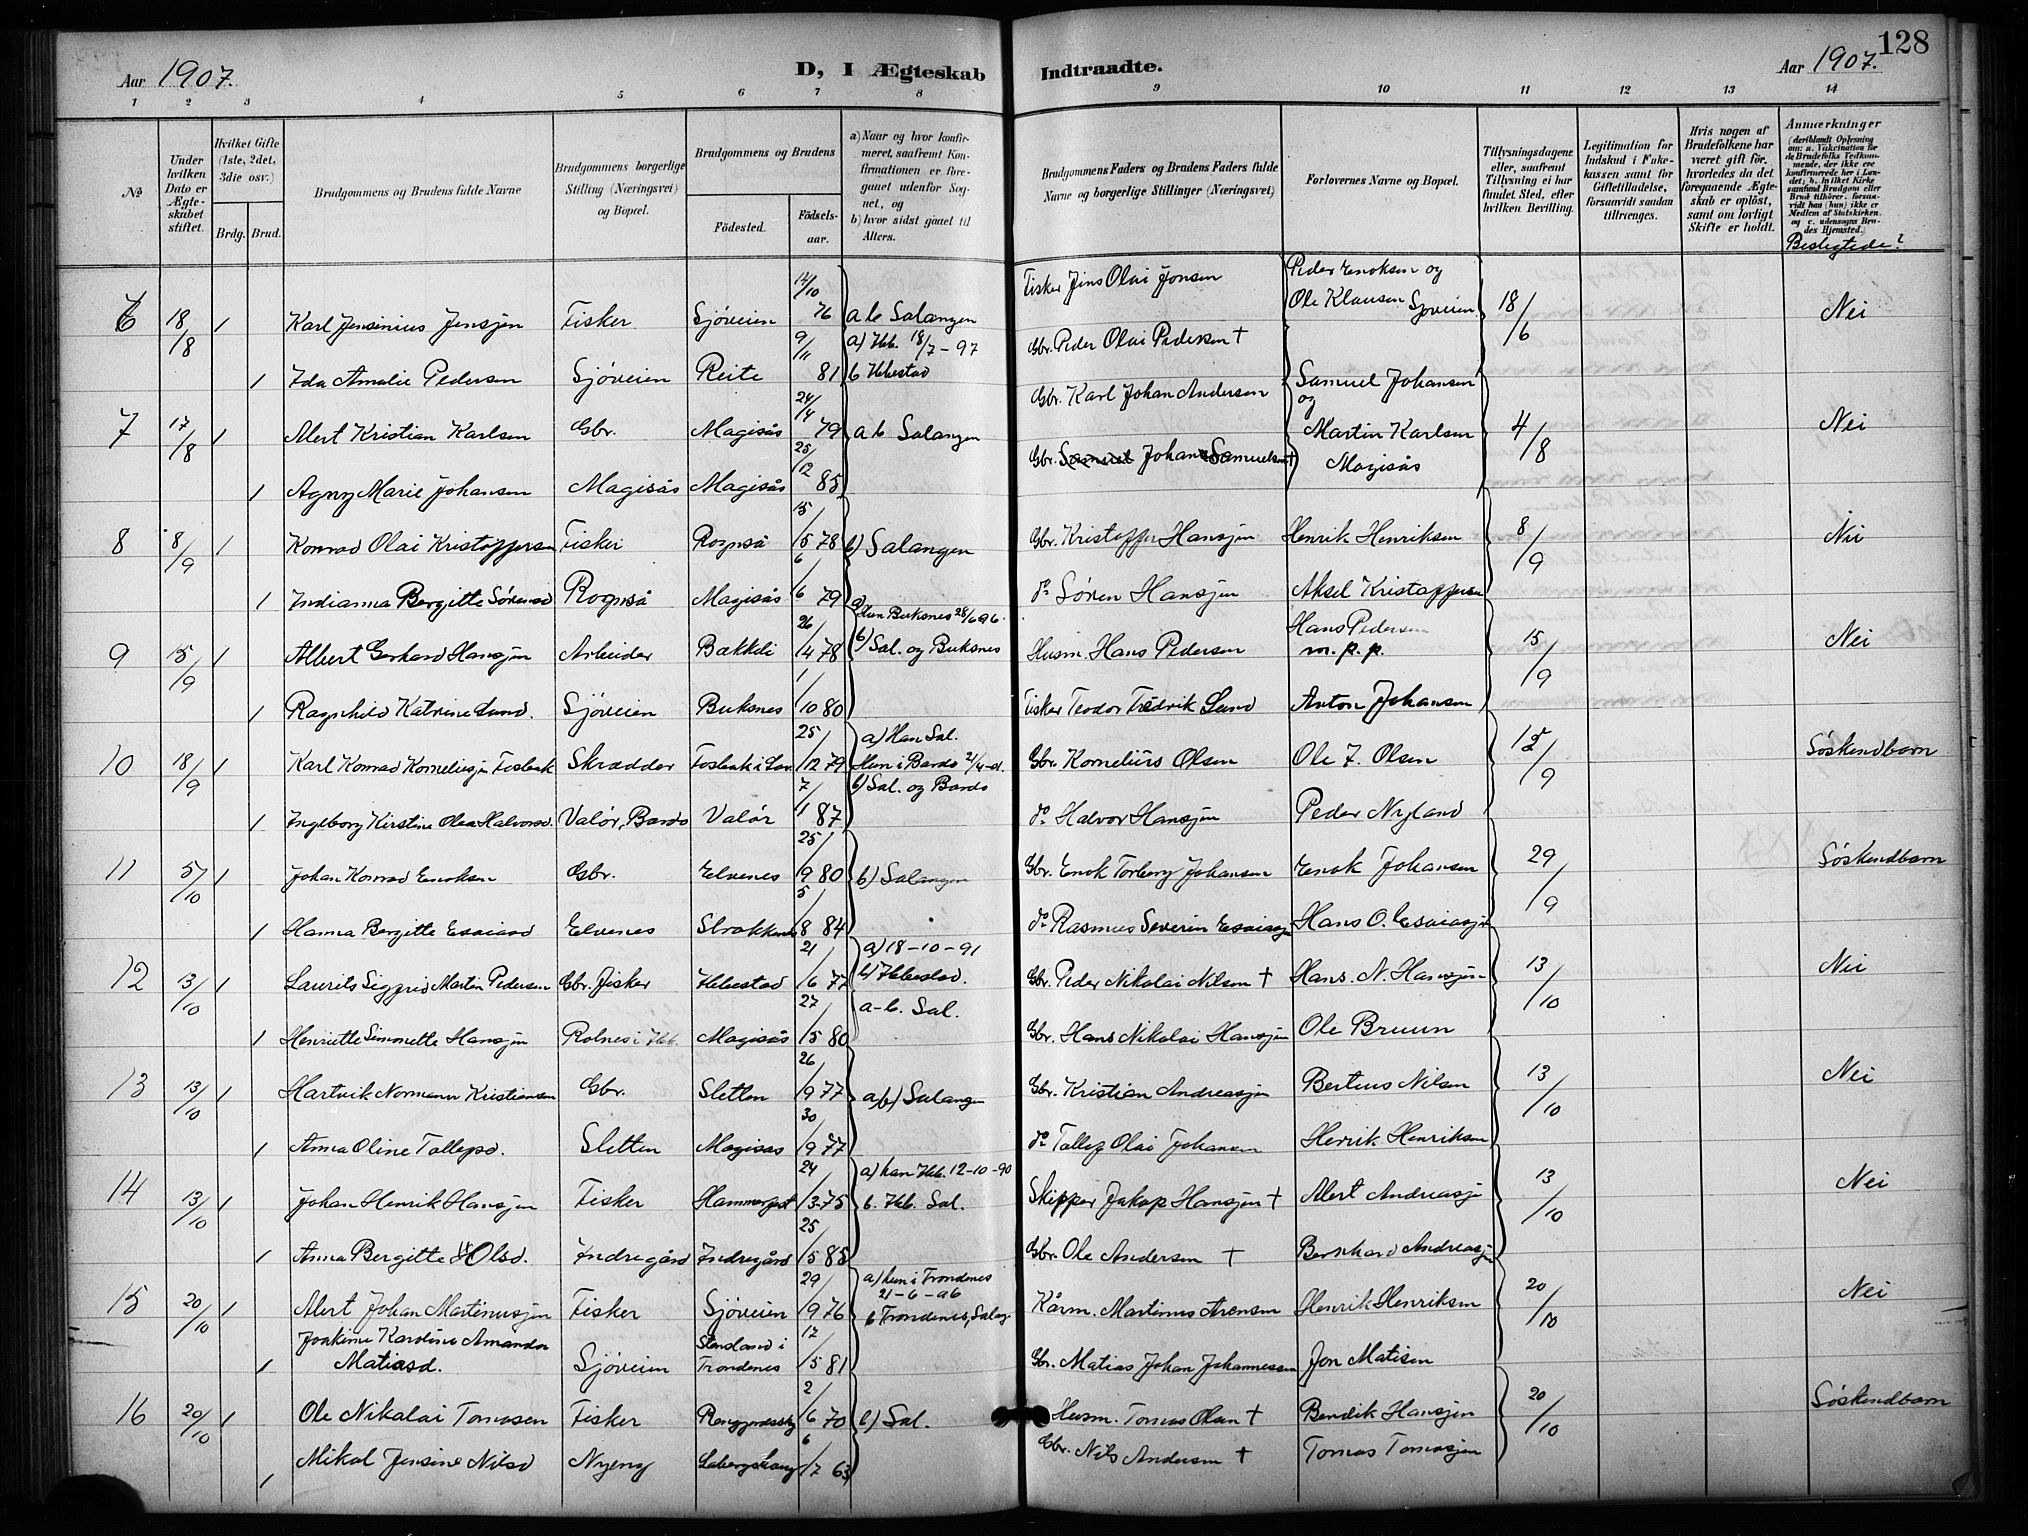 128
Aar 1907.
D, I Ægteskab Indtraadte.
Aar 1907.
1 2 3 4 5 6 7 8 9 10 11 12 13 14
No
Under hvilken Dato er Ægteskabet stiftet.
Hvilket Gifte (1ste, 2det, 3die osv.)
Brdg. Brud.
Brudgommens og Brudens fulde Navne
Brudgommens borgerlige Stilling (Næringsvei) og Bopæl.
Brudgommens og Brudens
Fødested. Fødselsaar.
a) Naar og hvor konfirmeret, saafremt Konfirmationen er foregaaet udenfor Sognet, og
b) hvor sidst gaaet til Alters.
Brudgommens Faders og Brudens Faders fulde Navne og borgerlige Stillinger (Næringsvei)
Forlovernes Navne og Bopæl.
Tillysningsdagene eller, saafremt Tillysning ei har fundet Sted, efter hvilken Bevilling.
Legitimation for Indskud i Fakekassen samt for Giftetilladelse, forsaavidt saadan tiltrænges.
Hvis nogen af Brudefolkene har været gift før, hvorledes da det foregaaende Ægteskab er opløst, samt om lovligt Skifte er holdt.
Anmærkninger
(deriblandt Oplysning om: a. Vakcination for de Brudefolks Vedkommende, der ikke ere konfirmerede her i Landet; b. hvilket Kirkesamfund Brudgom eller Brud tilhører, forsaavidt han (hun) ikke er Medlem af Statskirken, og c. udensogns Brudes Hjemsted.)
Beslegtede?
6 18/8 1 Karl Jensinius Jensjen Fisker Sjøveien 12/10 76 a b Salangen Fisker Jens Olai Jonsen Peder Enoksen og Ole Klausen Sjøveien 18/6 Nei
1 Ida Amalie Pedersen Sjøveien Reite 9/11 81 a) Ibb. 18/7-97 b Ibbestad Gbr. Peder Olai Pedersen †
7 17/8 1 Alert Kristian Karlsen Gbr. Magisås 24/4 79 a b Salangen Gbr. Karl Johan Andersen Samuel Johansen og Martin Karlsen Magisås 4/8 Nei
1 Agny Marie Johansen Magisås Magisås 25/12 85 Gbr. Johan Samuelsen †
8 8/9 1 Konrad Olai Kristoffersen Fisker Rognså 15/5 78 b) Salangen Gbr. Kristoffer Hansjen Henrik Henriksen 8/9 Nei
1 Indianna Bergitte Sørensd Rognså Magisås 6/6 79 do Søren Hansjen Aksel Kristoffersen
9 15/9 1 Albert Gerhard Hansjen Arbeider Bækkli 26/4 78 a) Hun Buksnes 28/6 96. b) Sal. og Buksnes Husm. Hans Pedersen Hans Pedersen m. p. p. 15/9 Nei
1 Ragnhild Katrine Lund. Sjøveien Buksnes 1/10 80 Fisker Teodor Fredrik Lund Anton Johansen
10 18/9 1 Karl Konrad Kornelisjen Fosbak Skrædder Fosbak i Lav. 25/12 79 a) Han Sal. Hun i Bardo 2/4-d. b) Sal. og Bardo Gbr. Kornelius Olsen Ole J. Olsen 15/9 Søskendbarn
1 Ingeborg Kirstine Olea Halvorsd. Valør, Bardo Valør 7/11 87 do Halvor Hansjen Peder Nyland
11 5/10 1 Johan Konrad Enoksen Gbr. Elvenes 25/9 80 b) Salangen Gbr. Enok Torberg Johansen Enok Johansen 29/9 Søskendbarn
1 Hanna Bergitte Esaiasd Elvenes 5/8 84 do Rasmus Severin Esaiasjen Hans O. Esaiasjen
12 13/10 1 Laurits Sigfrid Martin Pedersen Gbr. Fisker Ibbestad 21/6 77 a) 18-10-91 b) Ibbestad. Gbr. Peder Nikolai Nilsen † Hans. N. Hansjen 13/10 Nei
1 Henriette Simonette Hansjen Rolnes i Ibb. Magisås 27/5 80 a-b. Sal. Gbr. Hans Nikolai Hansjen Ole Bruun
13 13/10 1 Hartvik Normann Kristiansen Gbr. Sletten 26/9 77 a) b) Salangen Gbr. Kristian Andreasjen Bertinus Nilsen 13/10 Nei
1 Anna Oline Tollefsd. Sletten Magisås 30/9 77 do Tollef Olai Johansen Henrik Henriksen
14 13/10 1 Johan Henrik Hansjen Fisker Hammerfest 24/3 75 a) han Ibb. 12-10-90 b. Ibb. Sal. Skipper Jakop Hansjen † Alert Andreasjen 13/10 Nei
1 Anna Bergitte Olsd. Indregård Indregård 25/5 85 Gbr. Ole Andersen † Bernhard Andreasjen
15 20/10 1 Alert Johan Martinusjen Fisker Sjøveien 29/9 76 a) hun i Trondenes 21-6-96 b Trondenes, Salag Kårm. Martinus Arensen Henrik Henriksen 20/10 Nei
1 Joakime Karoline Amanda Matiasd. Sjøveien Stensland i Trondenes 17/5 81 Gbr. Matias Johan Johannessen Jon Matisen
16 20/10 1 Ole Nikolai Tomasen Fisker 2/6 70 b) Sal. Husm. Tomas Olsen † Bendik Hansjen 20/10 Søskendbarn
1 Mikal Jensine Nilsd Nyeng 6/7 63 Gbr. Nils Andersen † Tomas Tomasjen